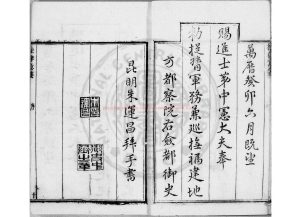 萬曆癸卯六月既望
賜進士第中憲大夫奉
勑提督軍務兼巡撫福建地
方都察院右僉都御史
昆明朱運昌拜手書